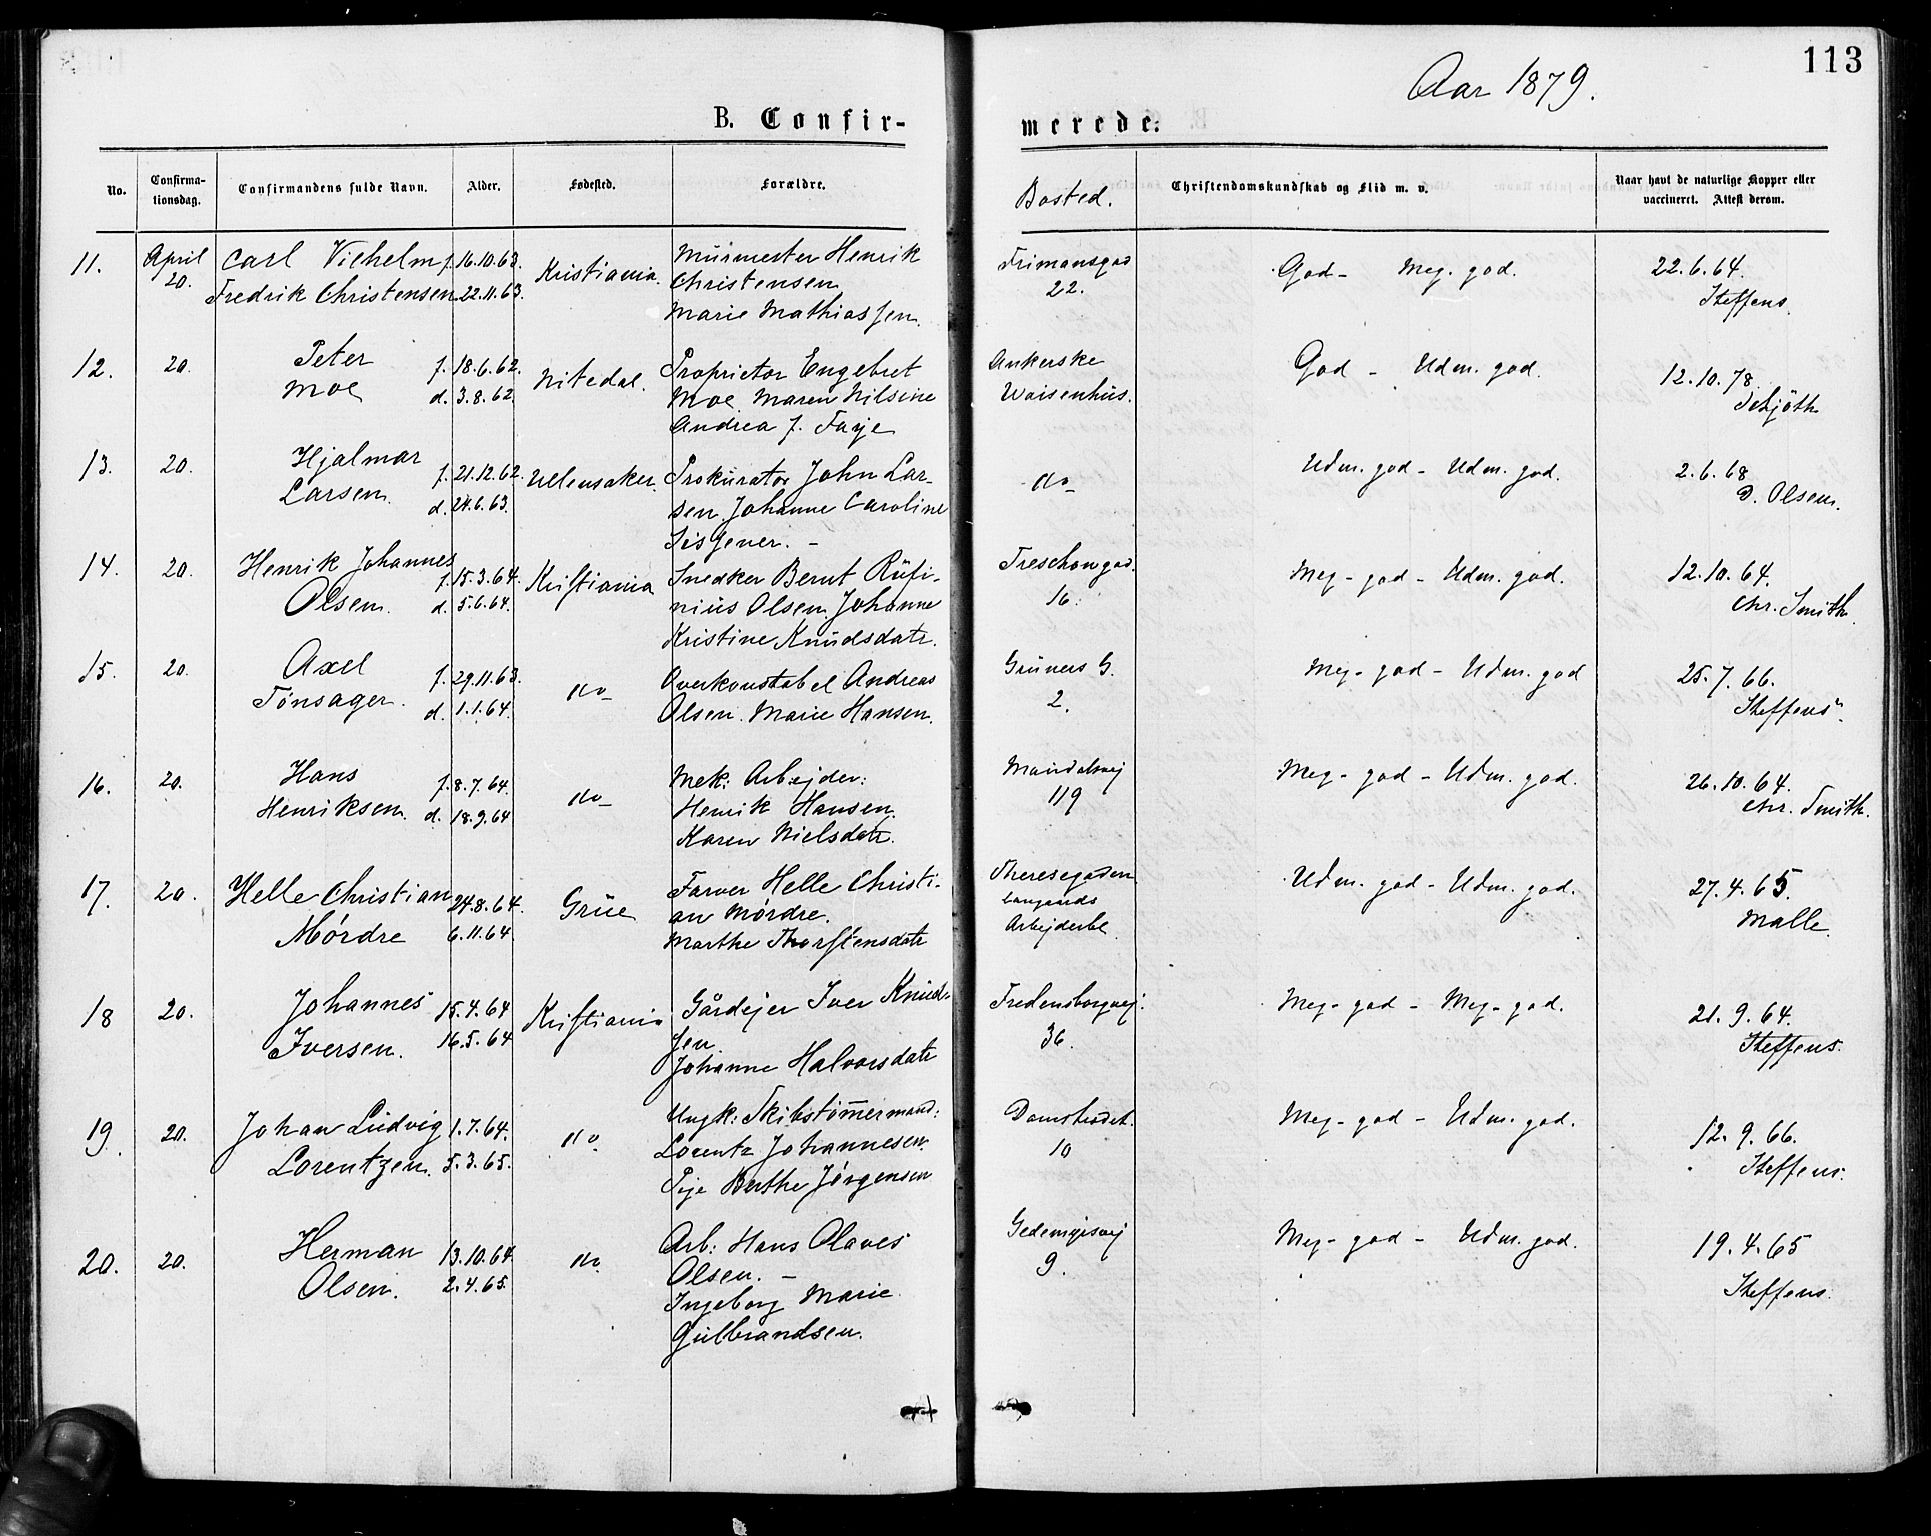 113
Aar 1879.
B. Confir-
merede.
No.
Confirma-
tionsdag.
Confirmandens fulde Navn.
Alder.
Fødested.
Forældre.
Bosted.
Christendomskundskab og Flid m. v.
Naar havt de naturlige Kopper eller
vaccineret. Attest derom.
11. April 20. Carl Vilhelm f. 16.10.63. Kristiania. Murmester Henrik Frimansgad God - Meg. god. 22.6.64.
Fredrik Christensen 22.11.63. Christensen 22. Steffens.
Marie Mathiassen.
12. 20. Peter f. 18.6.62. Nitedal. Proprietor Engebret Ankerske God - Udm. god. 12.10.78.
Moe d. 3.8.62. Moe. Maren Nilsine Waisenhus. Schjøth
Andrea f. Faye
13. 20. Hjalmar f. 21.12.62. Ullensaker. Prokurator John Lar- do Udm. god - Udm. god. 2.6.68
Larsen. d. 24.6.63. sen Johanne Caroline D. Olsen.
14. 20. Henrik Johannes f. 15.3.64. Kristiania Snedker Bernt Rufi- Treschowgad. Meg - god - Udm. god. 12.10.64.
Olsen. d. 5.6.64. nius Olsen Johanne 16. Chr. Smith.
Kristine Knudsdatr.
15. 20. Axel f. 29.11.63. do Overkonstabel Andreas Grüners G. Meg - god - Udm. god 25.7.66.
Tønsager. d. 1.1.64. Olsen. Marie Hansen. 2. Steffens.
16. 20. Hans f. 8.7.64. do Mek: Arbejder: Maridalsvej Meg - god - Udm. god. 26.10.64.
Henriksen. d. 18.9.64 Henrik Hansen. 119 Chr. Smith.
Karen Nielsdatr.
17. 20. Helle Christian 24.8.64. Grue Farver Helle Christi- Theresegaden Udm. god - Udm. god. 27.4.65.
Mørdre 6.11.64. an Mørdre. Malle.
Marthe Thorstensdatr Arbejderbl.
18 20. Johannes 15.4.64 Kristiania Gårdejer Iver Knud- Fredensborgvej. Meg - god - Meg - god. 21.9.64.
Iversen. 16.5.64 sen 36. Steffens.
Johanne Halvorsdatr
19. 20. Johan Ludvig 1.7.64. do Ungk: Skibstømmermand: Damstredet. Meg - god - Udm. god. 12.9.66.
Lorentzen. 5.3.65. Lorentz Johannesen. 10 Steffens.
Pige Berthe Jørgensen
20. 20. Herman 13.10.64 do Arb: Hans Olaves Gedemyrsvej Meg - god - Udm. god. 19.4.65
Olsen. 2.4.65. Olsen. - 9. Steffens.
Ingeborg Marie
Gulbrandsen.